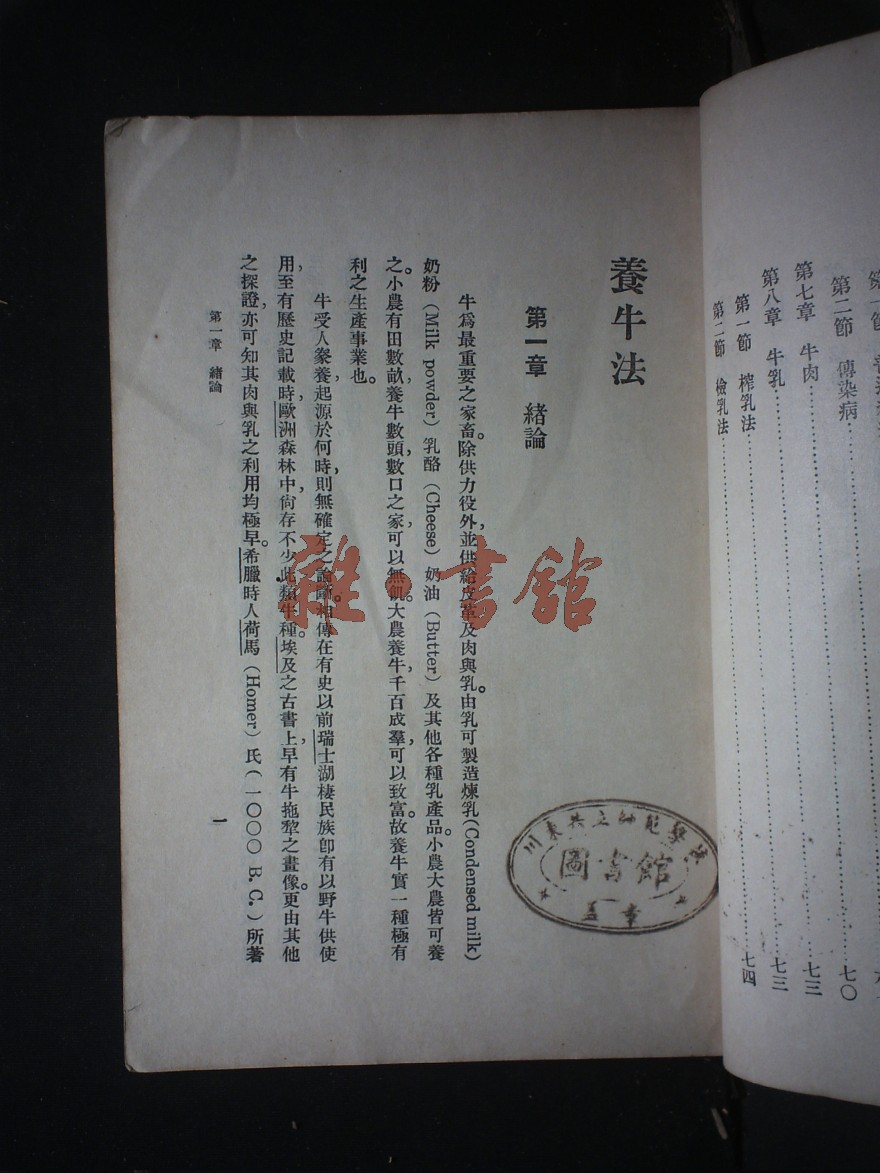 第二節　傳染病……七〇
第七章　牛肉……七三
第八章　牛乳……七三
第一節　榨乳法……七四
第二節　檢乳法……
養牛法
第一章　緒論
牛爲最重要之家畜。除供力役外，並供給皮革及肉與乳。由乳可製造煉乳（Condensed milk）
奶粉（Milk powder）乳酪（Cheese）奶油（Butter）及其他各種乳產品。小農大農皆可養
之。小農有田數畝，養牛數頭，數口之家可以無飢。大農養牛，千百成羣，可以致富。故養牛實一種極有
利之生產事業也。
牛受人豢養，起源於何時，則無確定之論斷。相傳在有史以前，瑞士湖棲民族卽有以野牛供使
用，至有歷史記載時，歐洲森林中尙存不少此類牛種。埃及之古書上，早有牛拖犂之畫像。更由其他
之探證，亦可知其肉與乳之利用均極早。希臘時人荷馬（Homer）氏（一〇〇〇 B. C.）所著
第一章　緒論
一
川東共立師範學校
圖書館
蓋章
雜·書館